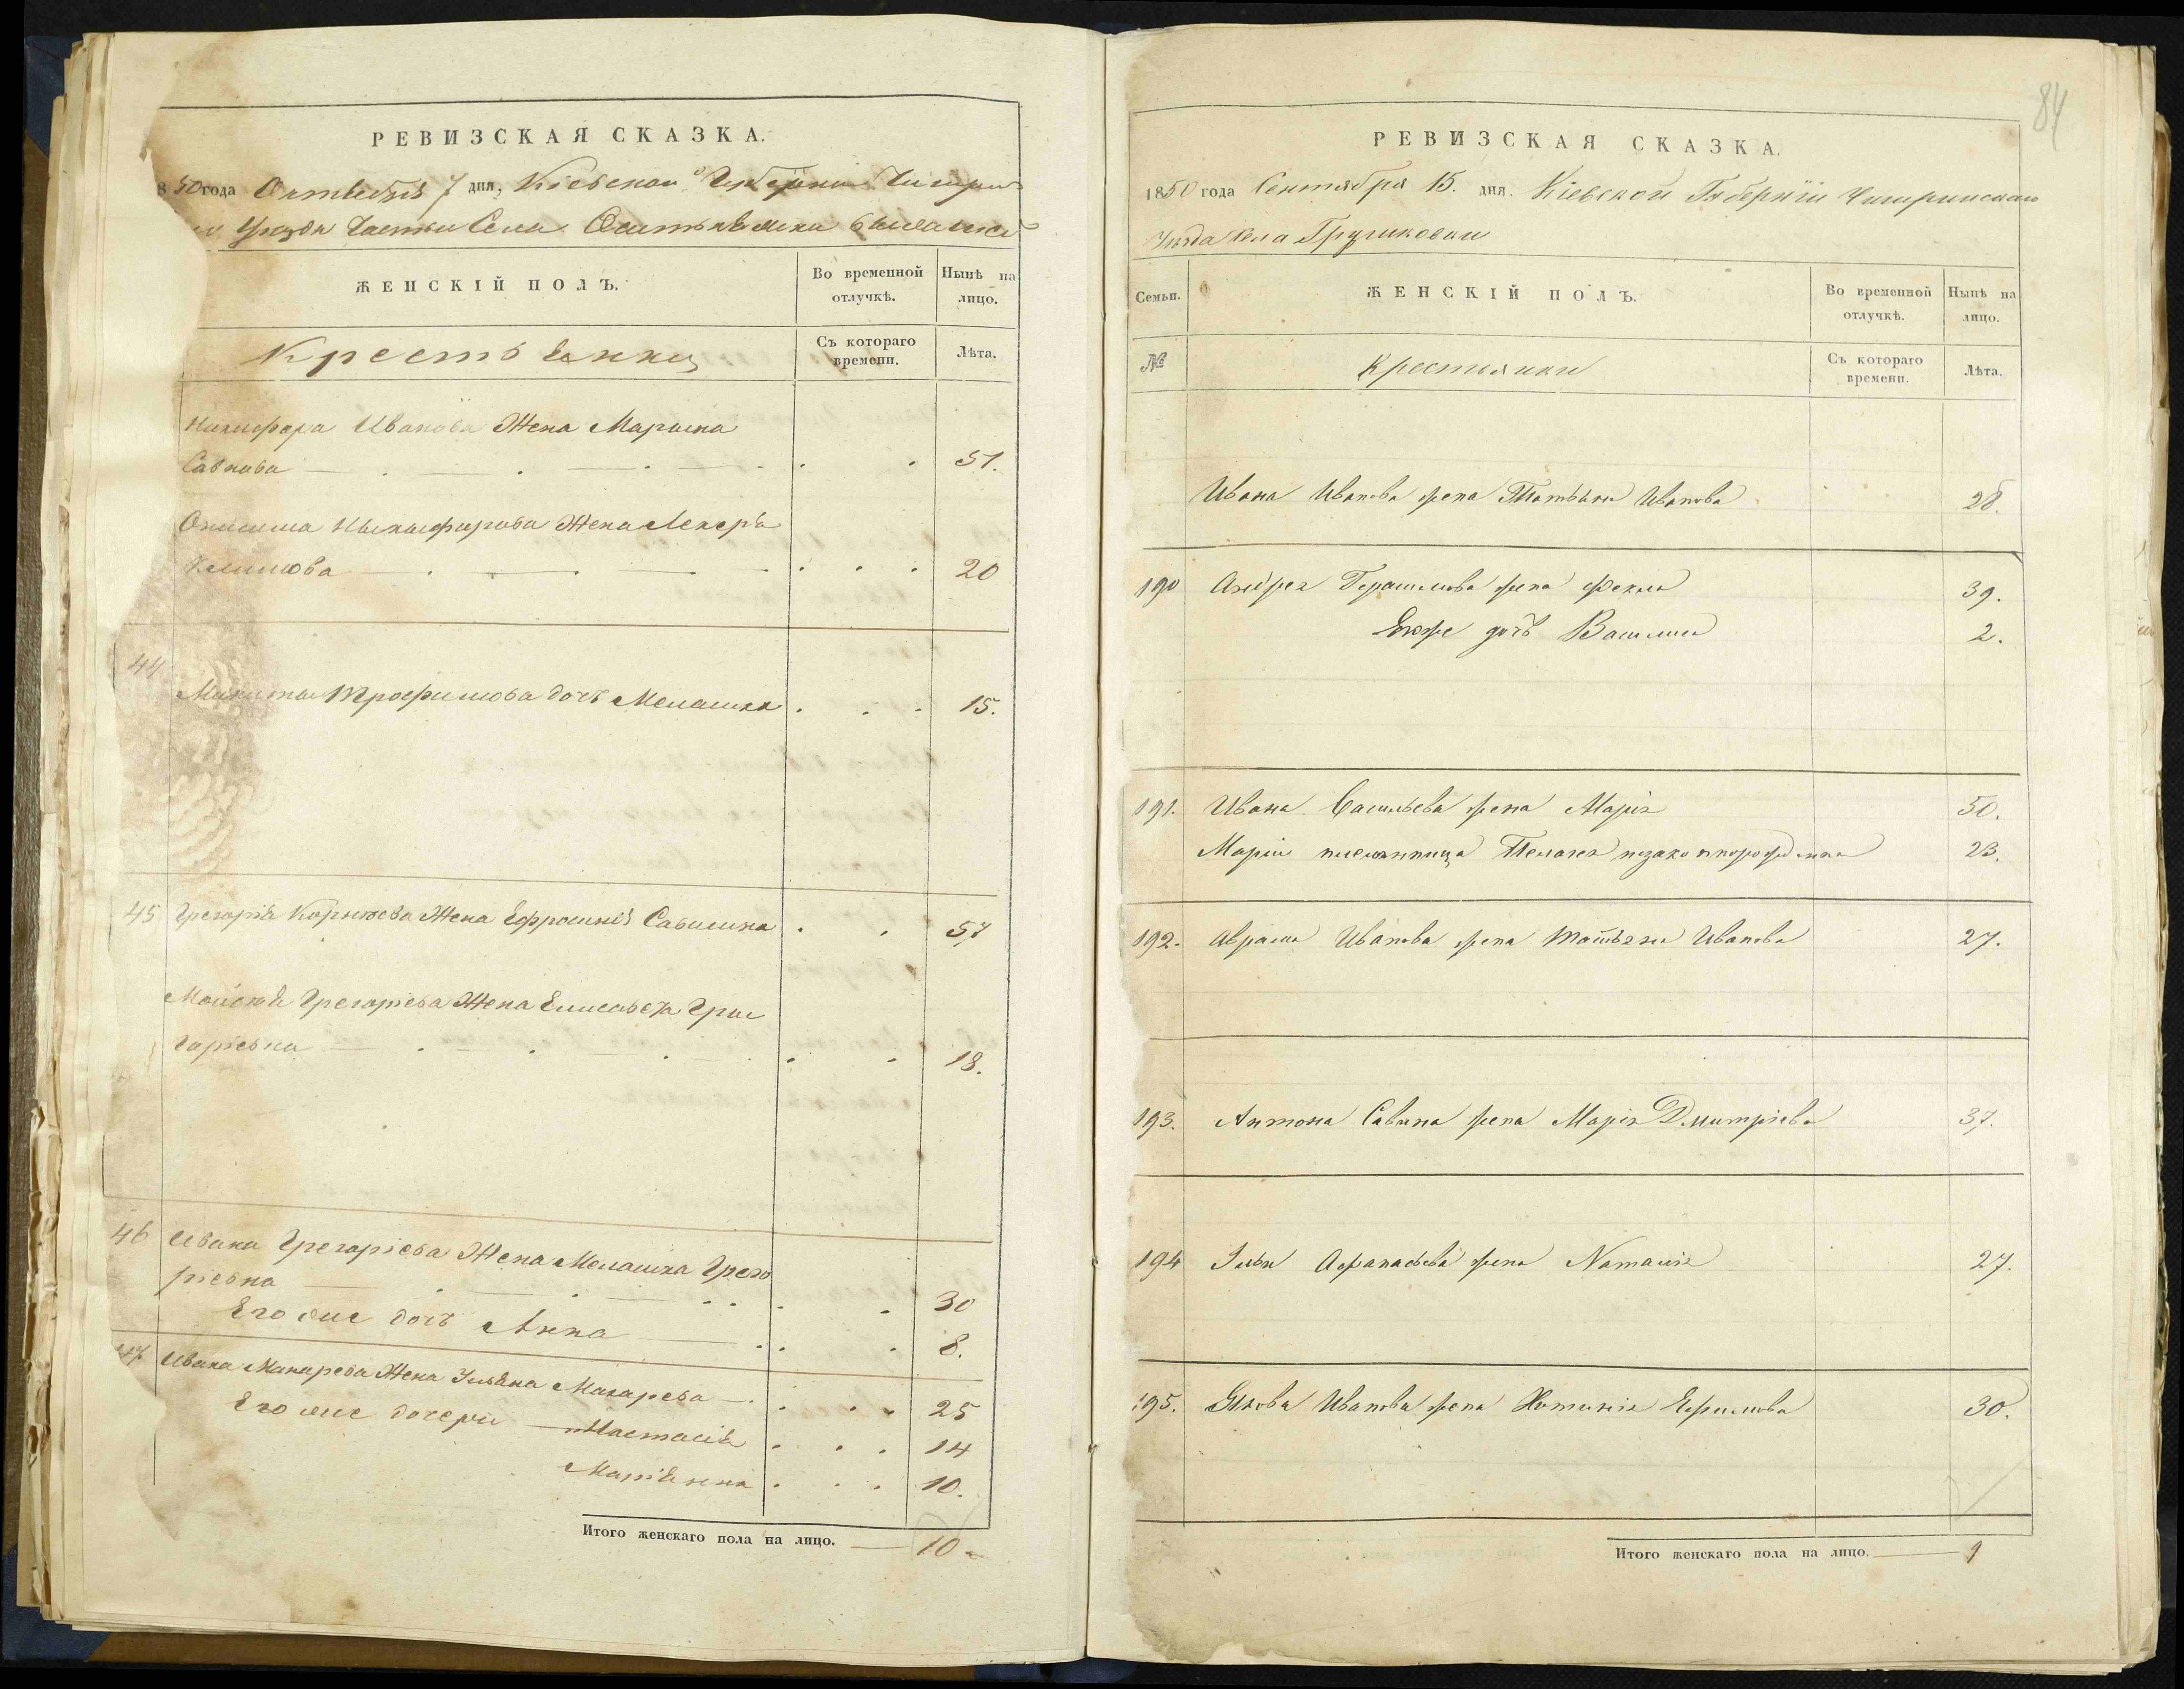 РЕВИЗСКАЯ СКАЗКА.
850 года Октября 7 дня, Кіевской Губерніи Чигрин
Уезда Части Села
ЖЕНСКІЙ ПОЛЪ.
Во временной отлучкѣ.
Нынѣ на лицо.
Крестьянки
Съ котораго времени.
Лѣта.
Никифора Иванова Жена Марина
Савкова 51.
Онисима Никифорова Жена
Климова 20
44
Микиты Трофимова дочъ Мелашка 15.
45 Грегорія Корнеева Жена Ефросинія 57
Мойсея Грегоріева Жена Елисавета Гри
горіевна 18.
46 Ивана Грегоріева Жена Мелашка Грего
ріевна 30
Его же дочъ Анна 8.
47 Ивана Макарева Жена Ульяна Макарева 25
Его же дочери Настасія 14
Маріянна 10.
Итого женскаго пола на лицо. 10
84
РЕВИЗСКАЯ СКАЗКА.
1850 года Сентября 15. дня. Кіевской Губерніи Чигринскаго
Уѣзда Села
Семьи.
ЖЕНСКІЙ ПОЛЪ.
Во временной отлучкѣ.
Нынѣ на лицо.
№
Крестьянки
Съ котораго времени.
Лѣта.
Ивана Иванова жена Татьяна Иванова 28.
190 Андрея Герасимова жена Фекла 39.
Его же дочъ Василиса 2.
191. Ивана Васильева жена Марія 50.
Маріи племянница Пелагея незаконнорожденна 23.
192. Аврама Иванова жена Татьяна Иванова 27.
193. Антона Савина жена Марія Дмитріева 37.
194 Ильи Афанасьева жена Наталия 27.
195. Якова Иванова жена Ефимова 30.
Итого женскаго пола на лицо. 9